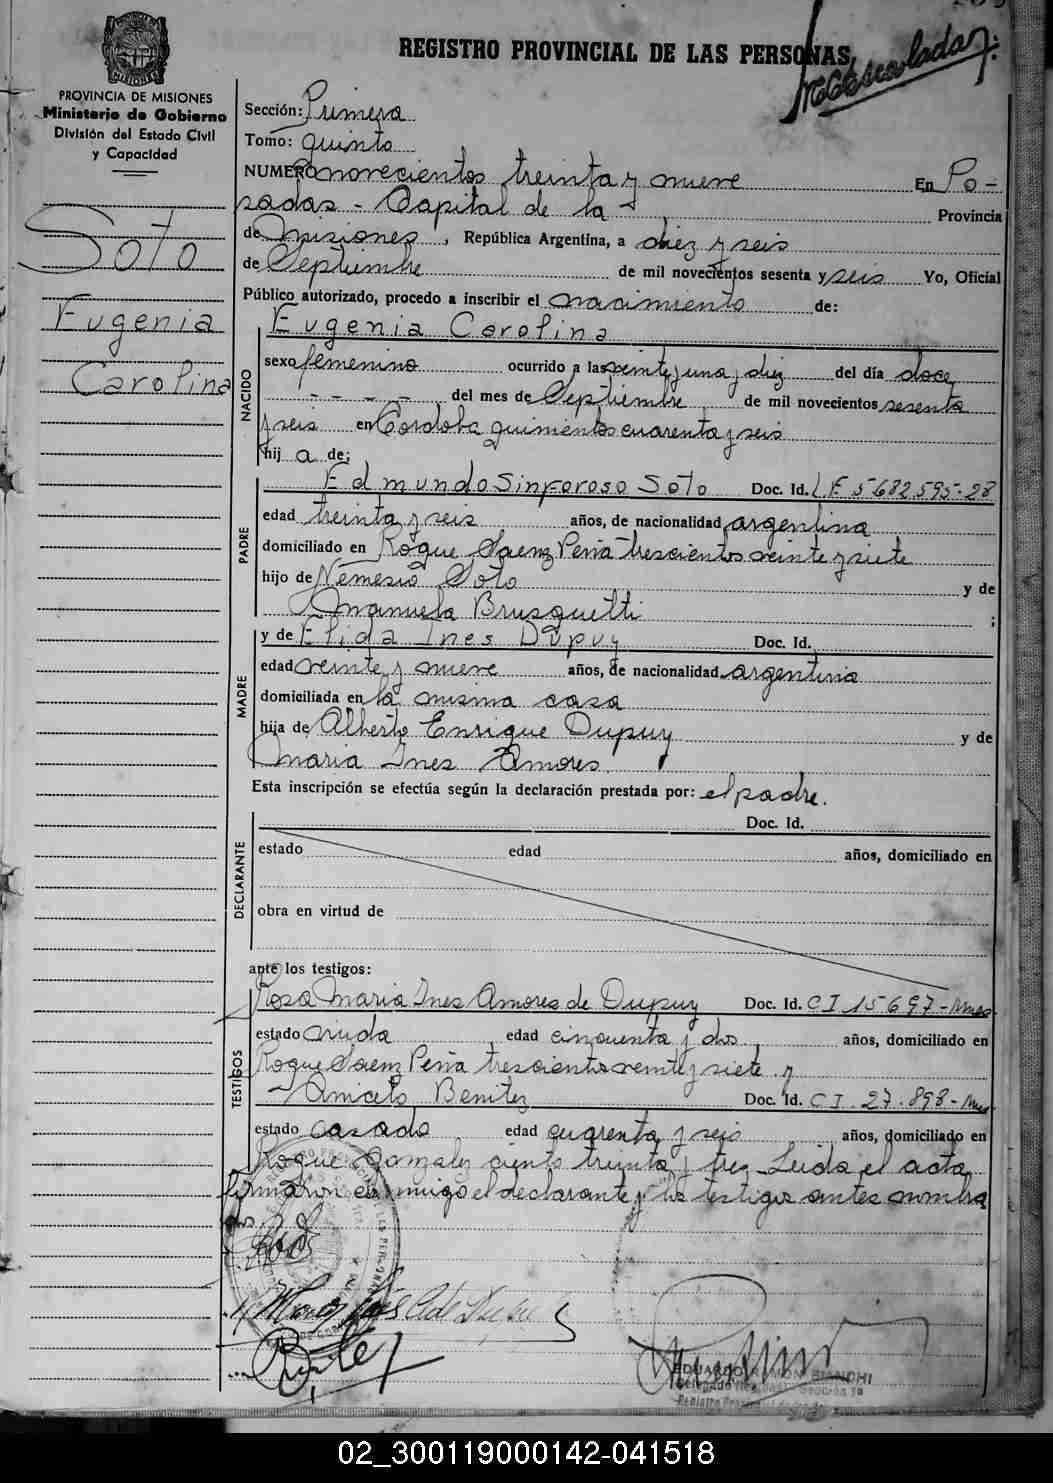 REGISTRO PROVINCIAL DE LAS PERSONAS
PROVINCIA DE MISIONES
Ministerio de Gobierno
División del Estado Civil
y Capacidad
Soto
Eugenia
Carolina
Sección: Primera
Tomo: quinto
NUMERO novecientos treinta y nueve En Po-
sadas - Capital de la Provincia
de Misiones, República Argentina, a diez y seis
de Septiembre de mil novecientos sesenta y seis Yo, Oficial
Público autorizado, procedo a inscribir el nacimiento de:
NACIDO
Eugenia Carolina
sexo femenino ocurrido a las veinte y una y diez del día doce
- - - - del mes de Septiembre de mil novecientos sesenta
y seis en Córdoba quinientos cuarenta y seis
hij a de:
PADRE
Edmundo Sinforoso Soto Doc. Id. L E 5682595-28
edad treinta y seis años, de nacionalidad argentina
domiciliado en Roque Saenz Peña trescientos veinte y siete
hijo de Nemesio Soto y de
Manuela Brusquetti ;
MADRE
y de Elida Ines Dupuy Doc. Id.
edad veinte y nueve años, de nacionalidad argentina
domiciliada en la misma casa
hija de Alberto Enrique Dupuy y de
Maria Ines Amores.
Esta inscripción se efectúa según la declaración prestada por: el padre.
DECLARANTE
Doc. Id.
estado edad años, domiciliado en
obra en virtud de
ante los testigos:
TESTIGOS
Rosa Maria Ines Amores de Dupuy Doc. Id. C I 15697-Mnes
estado viuda edad cincuenta y dos años, domiciliado en
Roque Saenz Peña trescientos veinte y siete y
Aniceto Benitez Doc. Id. C I. 27.898-Mnes
estado casado edad cuarenta y seis años, domiciliado en
Roque Gonzalez ciento treinta y tres - Leida el acta
firmaron conmigo el declarante y los testigos antes nombra
dos
EDUARDO RAMON BIANCHI
02_300119000142-041518